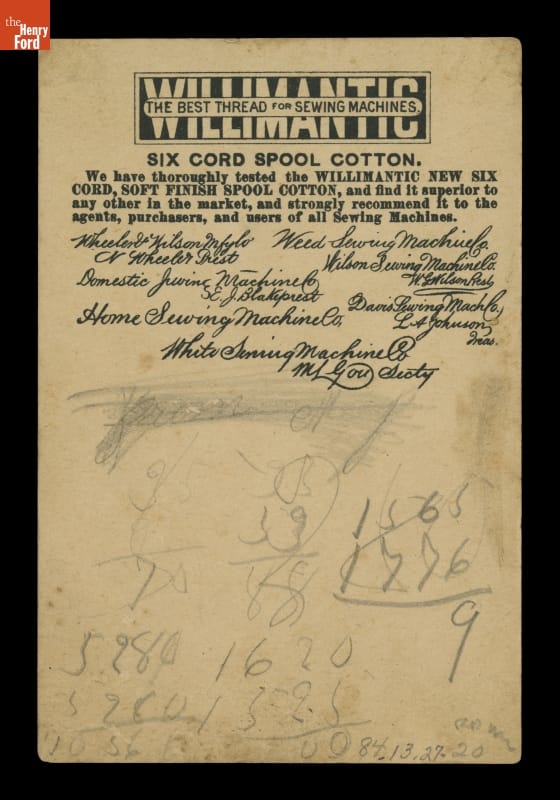 the
Henry
Ford
WILLIMANTIC
THE BEST THREAD FOR SEWING MACHINES.
SIX CORD SPOOL COTTON.
We have thoroughly tested the WILLIMANTIC NEW SIX
CORD, SOFT FINISH SPOOL COTTON, and find it superior to
any other in the market, and strongly recommend it to the
agents, purchasers, and users of all Sewing Machines.
Wheeler & Wilson Mfg Co
N Wheeler Prest
Weed Sewing Machine Co.
Wilson Sewing Machine Co.
W. G. Wilson Prest
Domestic Sewing Machine Co
E. J. Blake prest
Davis Sewing Mach Co,
L A Johnson,
Treas.
Home Sewing Machine Co,
White Sewing Machine Co
Secty
35
70
53
88
1565
1776
9
5280
5280
1620
1525
84.13.27.20